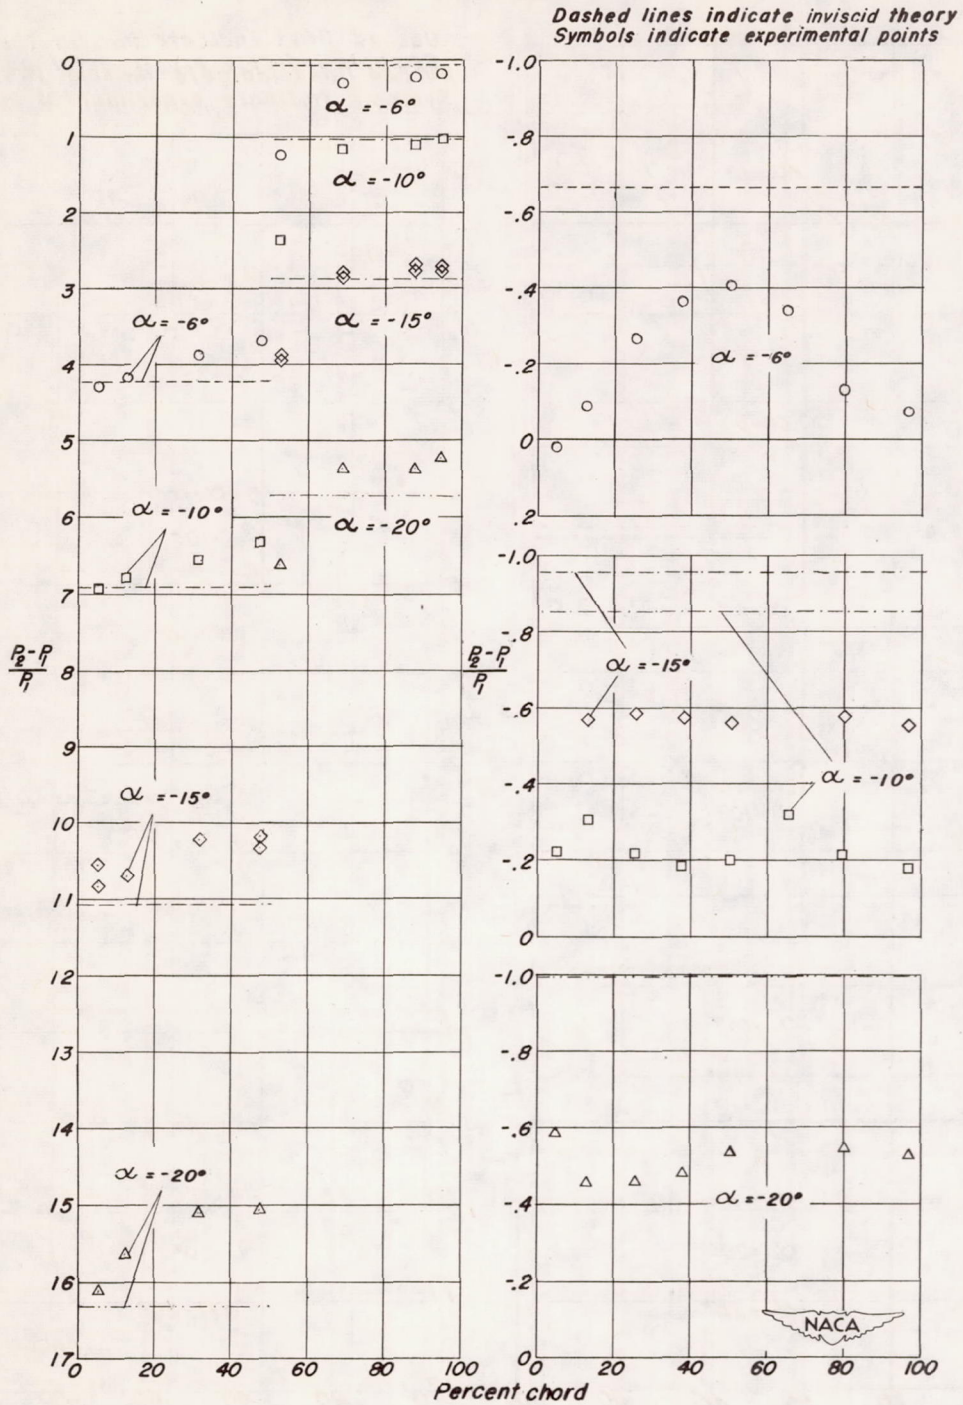 Dashed lines indicate inviscid theory
Symbols indicate experimental points
0
1
2
3
4
5
6
7
8
9
10
11
12
13
14
15
16
17
P₂-P₁
P₁
α = -6°
α = -10°
α = -15°
α = -6°
α = -10°
α = -20°
α = -15°
α = -20°
0 20 40 60 80 100
-1.0
-.8
-.6
-.4
-.2
0
.2
α = -6°
-1.0
-.8
-.6
-.4
-.2
0
P₂-P₁
P₁
α = -15°
α = -10°
-1.0
-.8
-.6
-.4
-.2
0
α = -20°
NACA
0 20 40 60 80 100
Percent chord